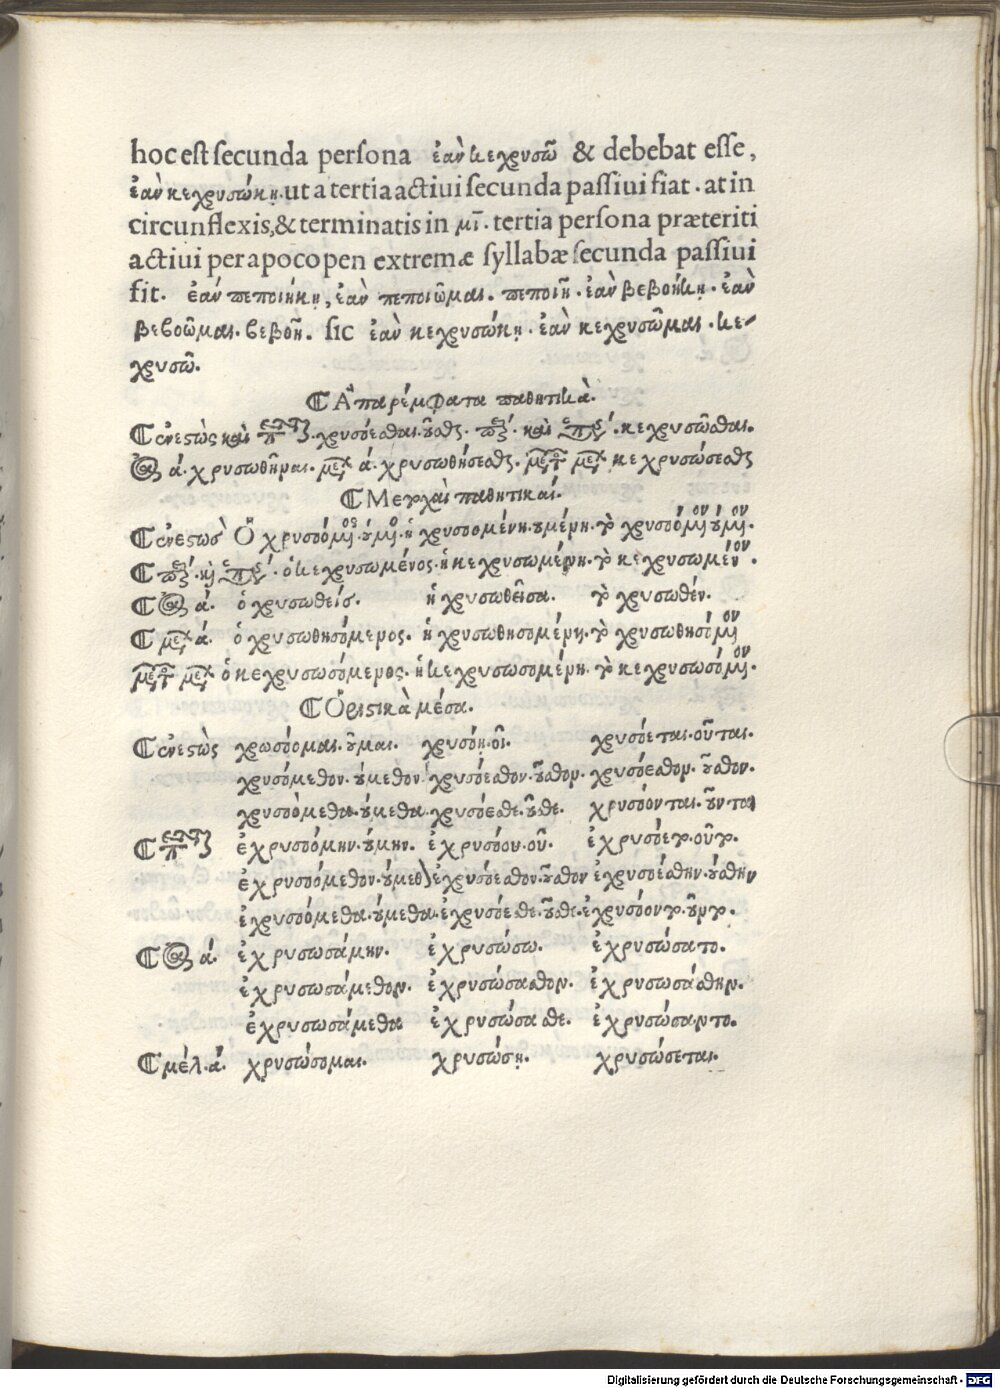 hoc est secunda persona ἐὰν κεχρυσῶ & debebat esse,
ἐὰν κεχρυσώκῃ. ut a tertia actiui secunda passiui fiat. at in
circunflexis, & terminatis in μι. tertia persona præteriti
actiui per apocopen extremæ syllabæ secunda passiui
fit. ἐὰν πεποιήκῃ, ἐὰν πεποιῶμαι. πεποιῇ. ἐὰν βεβοήκῃ. ἐὰν
βεβοῶμαι. βεβοῇ. sic ἐὰν κεχρυσώκῃ. ἐὰν κεχρυσῶμαι. κε-
χρυσῶ.
Ἀπαρέμφατα παθητικά.
ἐνεστὼς καὶ χρυσόεσθαι. οῦσθαι. καὶ κεχρυσῶσθαι.
ά. χρυσωθῆναι. ά. χρυσωθήσεσθαι. κεχρυσώσεσθαι
Μετοχαὶ παθητικαί.
ἐνεστὼς Ὁ χρυσούμενος. ούμενος. ἡ χρυσοομένη. ουμένη. τὸ χρυσοόμενον ούμενον.
ὁ κεχρυσωμένος. ἡ κεχρυσωμένη. τὸ κεχρυσωμένον.
ά. ὁ χρυσωθείς. ἡ χρυσωθεῖσα. τὸ χρυσωθέν.
ά. ὁ χρυσωθησόμενος. ἡ χρυσωθησομένη. τὸ χρυσωθησόμενον
ὁ κεχρυσωσόμενος. ἡ κεχρυσωσομένη. τὸ κεχρυσωσόμενον.
Ὁριστικὰ μέσα.
ἐνεστὼς χρυσόομαι. οῦμαι. χρυσόῃ. οῖ. χρυσόεται. οῦται.
χρυσοόμεθον. ούμεθον. χρυσόεσθον. οῦσθον. χρυσόεσθον. οῦσθον.
χρυσοόμεθα. ούμεθα. χρυσόεσθε. οῦσθε. χρυσόονται. οῦνται
ἐχρυσοόμην. ούμην. ἐχρυσόου. οῦ. ἐχρυσόετο. οῦτο.
ἐχρυσοόμεθον. ούμεθον ἐχρυσόεσθον. οῦσθον ἐχρυσοέσθην. ούσθην
ἐχρυσοόμεθα. ούμεθα. ἐχρυσόεσθε. οῦσθε. ἐχρυσόοντο. οῦντο.
ά. ἐχρυσωσάμην. ἐχρυσώσω. ἐχρυσώσατο.
ἐχρυσωσάμεθον. ἐχρυσώσασθον. ἐχρυσωσάσθην.
ἐχρυσωσάμεθα ἐχρυσώσασθε. ἐχρυσώσαντο.
μέλ. ά. χρυσώσομαι. χρυσώσῃ. χρυσώσεται.
Digitalisierung gefördert durch die Deutsche Forschungsgemeinschaft - DFG